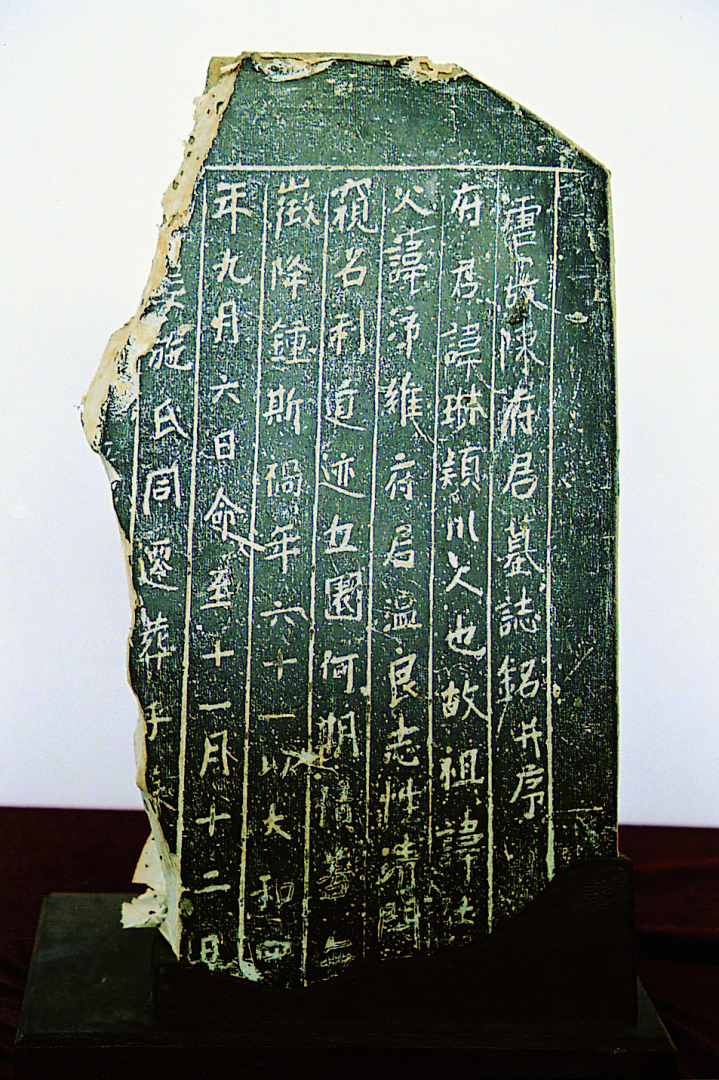 唐故陳府君墓誌銘并序
府君諱琳穎川人也故祖諱仕
父諱淨維府君温良志性清閑
窺名利遁迹丘園何期積善無
徵降鍾斯禍年六十一以大和四
年九月六日命至十一月十二日
旋氏同遷葬于